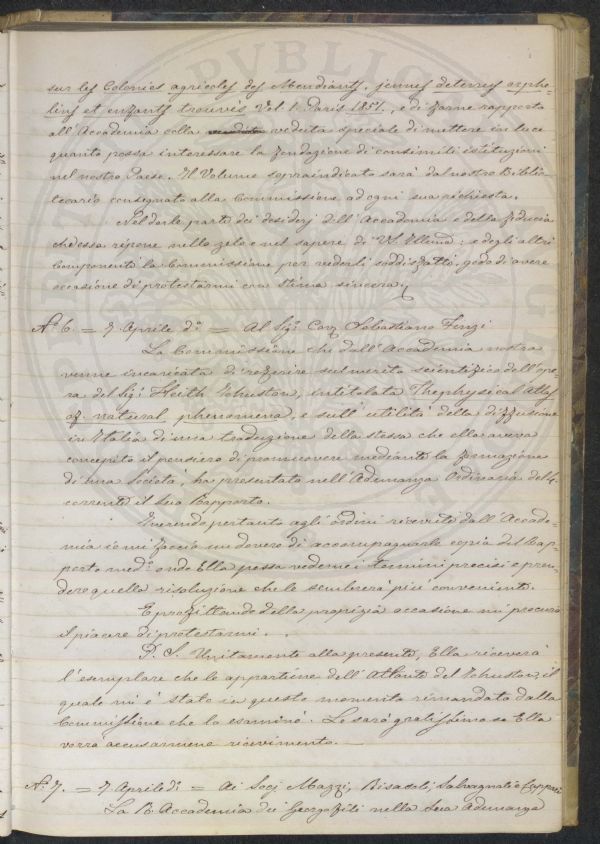 sur les Colonies agricoles des Mendiants, jeunes detenus orphe-
lins et enfants trouvés Vol. 1. Paris 1851., e di farne rapporto
all'Accademia colla veduta speciale di mettere in luce
quanto possa interessare la fondazione di consimili istituzioni
nel nostro Paese. Il Volume sopraindicato sarà dal nostro Biblio-
tecario consegnato alla Commissione ad ogni sua richiesta.
Nel darle parte dei desiderj dell'Accademia e della fiducia
che essa ripone nello zelo e nel sapere di V. S. Illma: e degli altri
componenti la Commissione per vederli soddisfatti, godo di avere
occasione di protestarmi con stima sincera.
N.° 6. = 7 Aprile d.° = Al Sig.r Cav. Sebastiano Fenzi
La Commissione che dall'Accademia nostra
venne incaricata di referire sul merito scientifico dell'ope-
ra del Sig.r Keith Jhonston, intitolata The physical Atlas
of natural phenomena, e sull'utilità della diffusione
in Italia di una traduzione della stessa che ella aveva
concepito il pensiero di promuovere mediante la formazione
di una Società, ha presentato nell'Adunanza Ordinaria del 4.
corrente il suo Rapporto.
Inerendo pertanto agli ordini ricevuti dall'Accade-
mia io mi faccio un dovere di accompagnarle copia del Rap-
porto med.° onde Ella possa vederne i termini precisi e pren-
dere quella risoluzione che le sembrerà più conveniente.
E profittando della propizia occasione mi procuro
il piacere di protestarmi. . .
P. S. Unitamente alla presente, Ella riceverà
l'esemplare che le appartiene dell'Atlante del Jhonston, il
quale mi è stato in questo momento rimandato dalla
Commissione che lo esaminò. Le sarò gratissimo se Ella
vorrà accusarmene ricevimento. —
N.° 7. = 7 Aprile d.° = Ai Socj Mazzi, Ricasoli, Salvagnoli e Cuppari
La R. Accademia dei Georgofili nella sua Adunanza